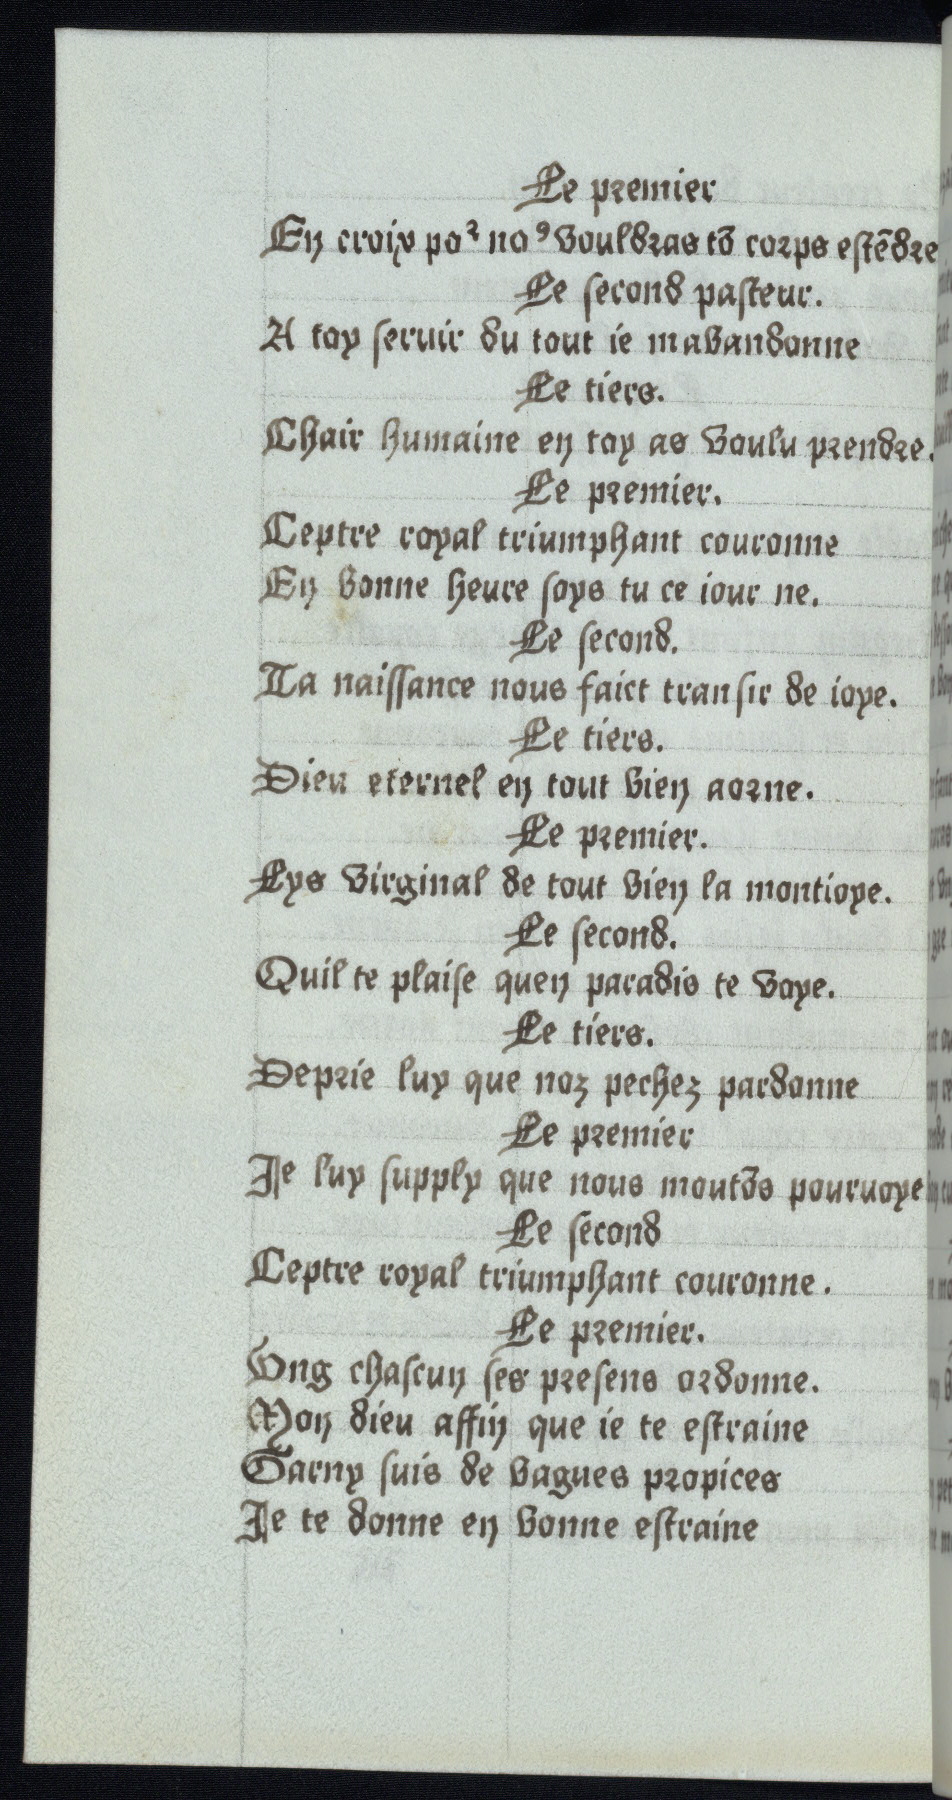 Le premier
En croix poꝛ noꝰ vouldras tō corps estēdre
Le second pasteur.
A toy seruir du tout ie mabandonne
Le tiers.
Chair humaine en toy as voulu prendre.
Le premier.
Ceptre royal triumphant couronne
En bonne heure soys tu ce iour ne.
Le second.
Ta naissance nous faict transir de ioye.
Le tiers.
Dieu eternel en tout bien aorne.
Le premier.
Lys virginal de tout bien la montioye.
Le second.
Quil te plaise quen paradis te voye.
Le tiers.
Deprie luy que noz pechez pardonne
Le premier
Je luy supply que nous moutōs pouruoye
Le second
Ceptre royal triumphant couronne.
Le premier.
Vng chascun ses presens ordonne.
Mon dieu affin que ie te estraine
Garny suis de bagues propices
Je te donne en bonne estraine